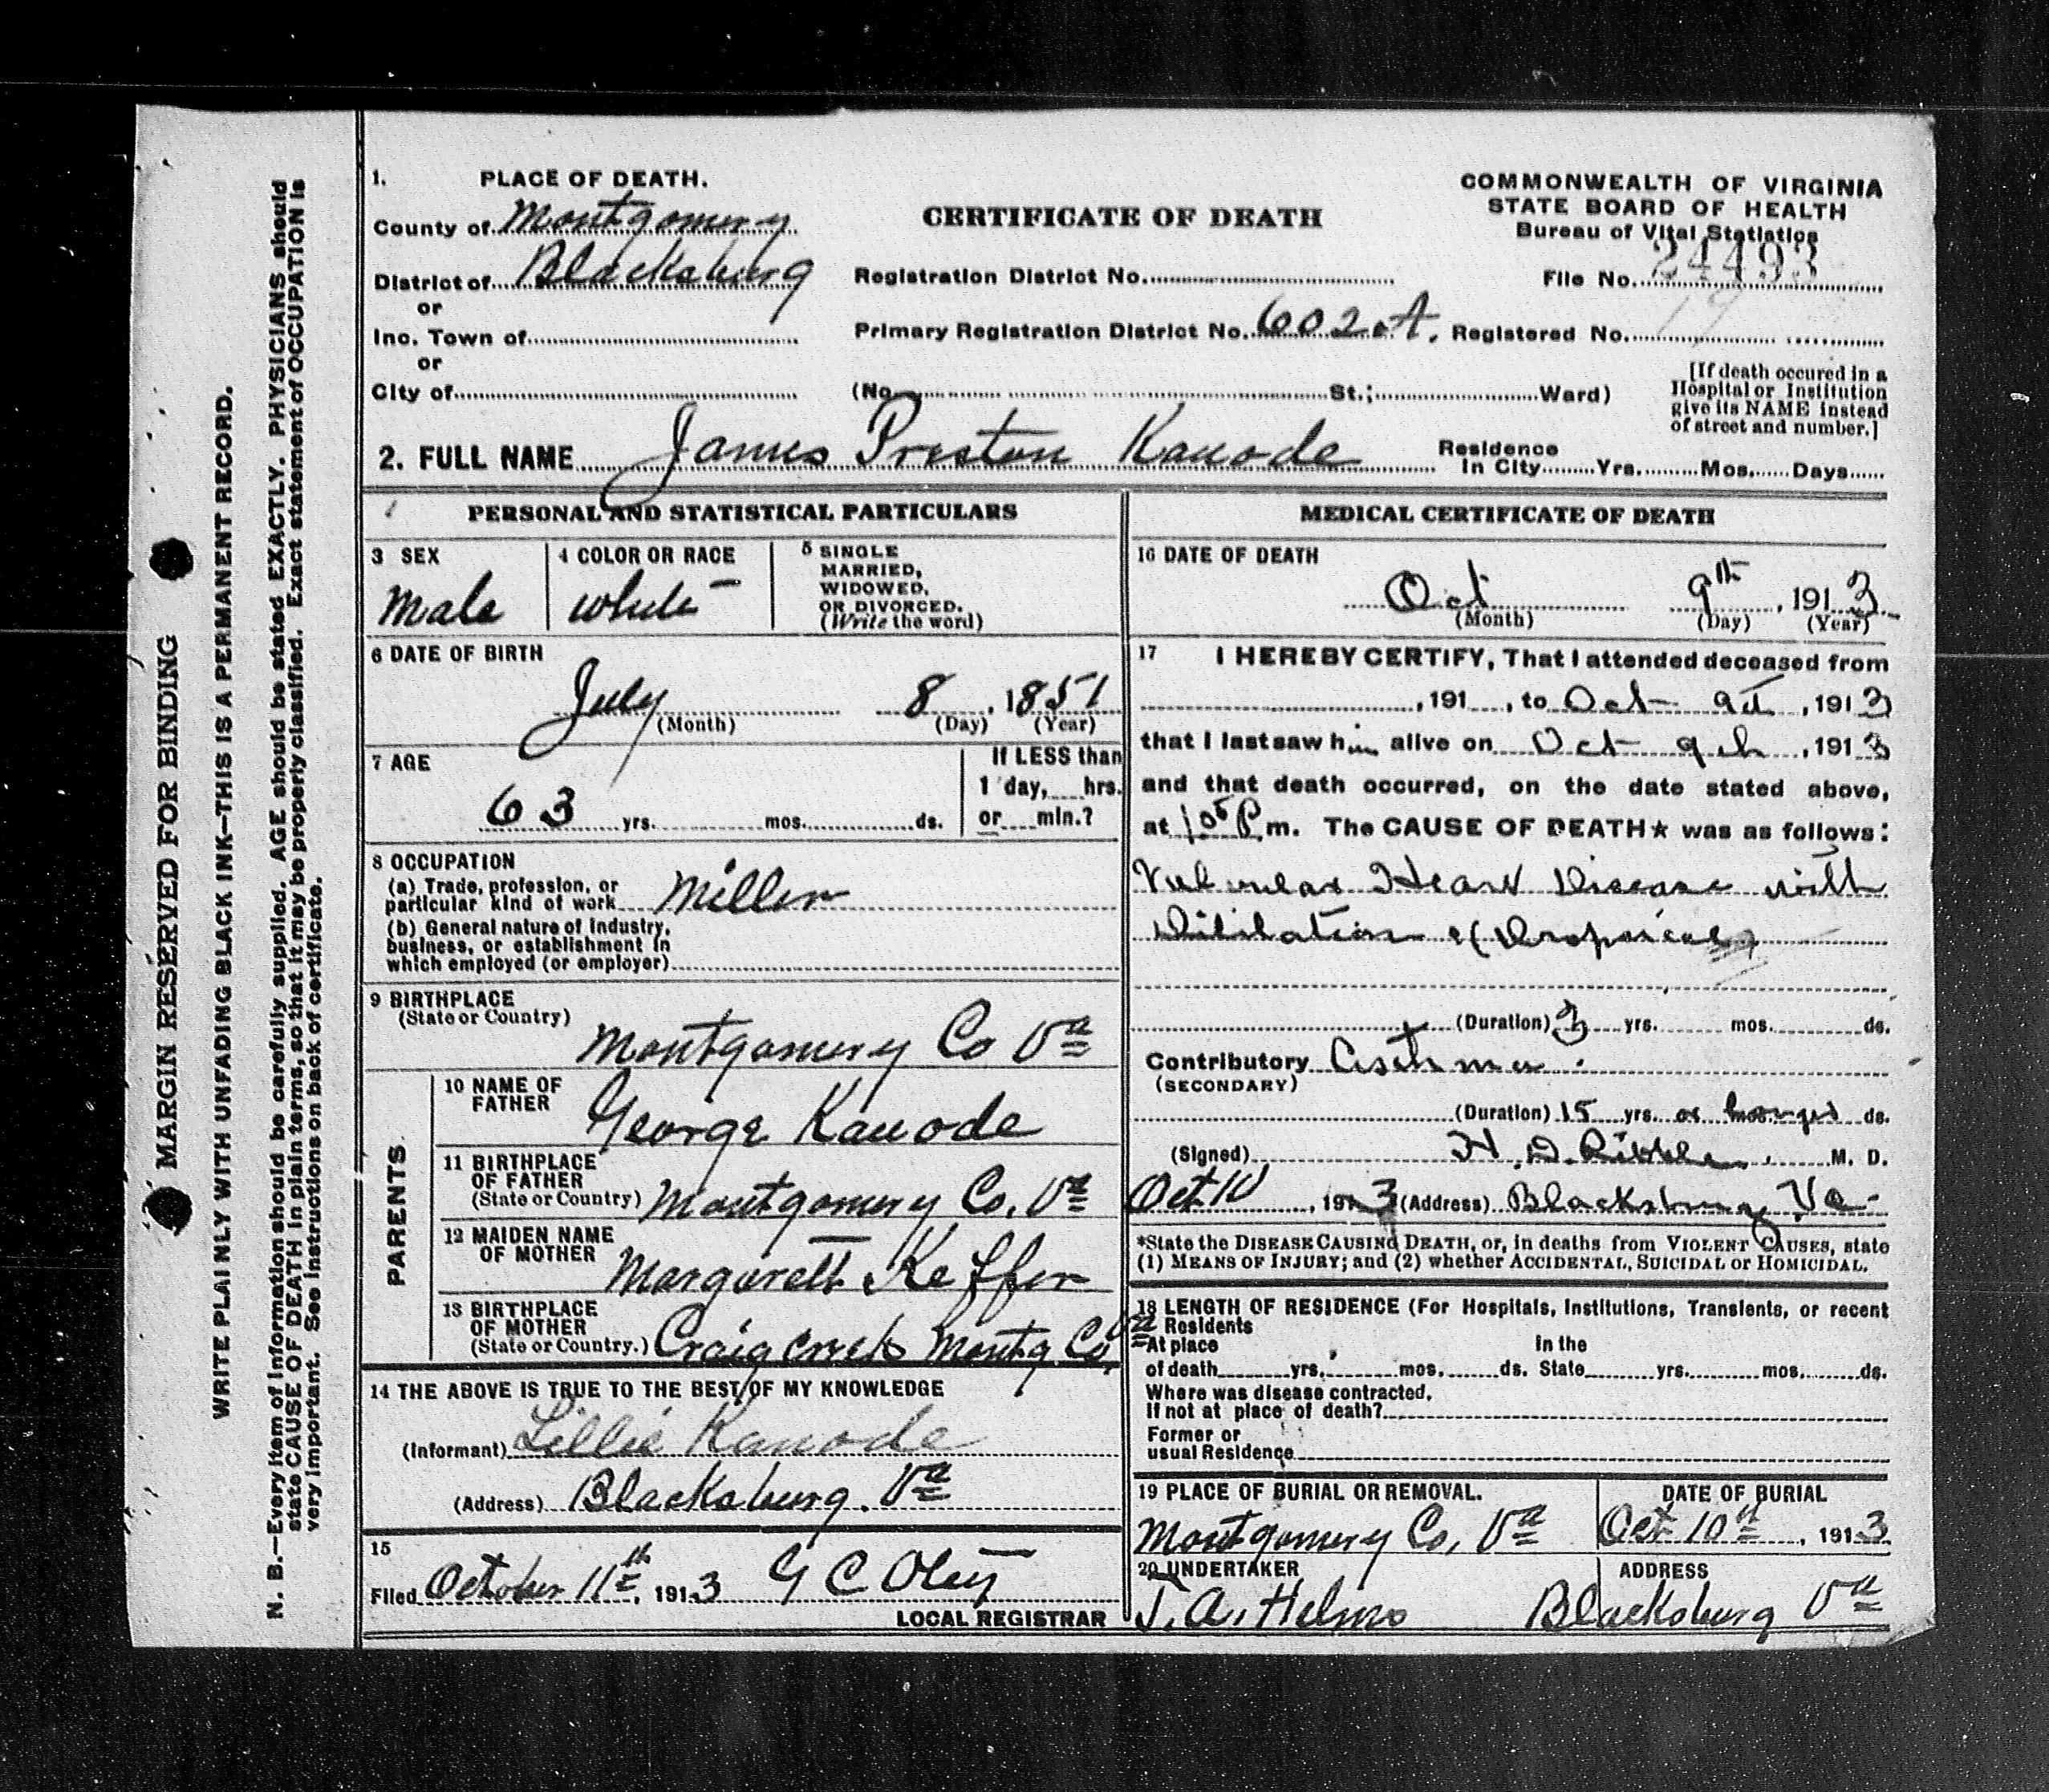 MARGIN RESERVED FOR BINDING
WRITE PLAINLY WITH UNFADING BLACK INK—THIS IS A PERMANENT RECORD.
N. B.—Every item of information should be carefully supplied. AGE should be stated EXACTLY. PHYSICIANS should
state CAUSE OF DEATH in plain terms, so that it may be properly classified. Exact statement of OCCUPATION is
very important. See instructions on back of certificate.
1. PLACE OF DEATH.
County of Montgomery
District of Blacksburg
or
Inc. Town of
or
City of
CERTIFICATE OF DEATH
COMMONWEALTH OF VIRGINIA
STATE BOARD OF HEALTH
Bureau of Vital Statistics
Registration District No.
File No. 24493
Primary Registration District No. 602.A. Registered No. 19
(No. St.; Ward)
[If death occured in a
Hospital or Institution
give its NAME instead
of street and number.]
2. FULL NAME James Preston Kanode
Residence
In City Yrs. Mos. Days
PERSONAL AND STATISTICAL PARTICULARS
3 SEX
Male
4 COLOR OR RACE
White
5 SINGLE
MARRIED,
WIDOWED,
OR DIVORCED.
(Write the word)
6 DATE OF BIRTH
July 8, 1851
(Month) (Day) (Year)
7 AGE
63 yrs. mos. ds.
If LESS than
1 day, hrs.
or min.?
8 OCCUPATION
(a) Trade, profession, or
particular kind of work Miller
(b) General nature of industry,
business, or establishment in
which employed (or employer)
9 BIRTHPLACE
(State or Country)
Montgomery Co Va
PARENTS
10 NAME OF
FATHER
George Kanode
11 BIRTHPLACE
OF FATHER
(State or Country) Montgomery Co, Va
12 MAIDEN NAME
OF MOTHER
Margarett Keffer
13 BIRTHPLACE
OF MOTHER
(State or Country.) Craig creek Montg Co, Va
14 THE ABOVE IS TRUE TO THE BEST OF MY KNOWLEDGE
(Informant) Lillie Kanode
(Address) Blacksburg. Va
15
Filed October 11th, 1913 G C Oley
LOCAL REGISTRAR
MEDICAL CERTIFICATE OF DEATH
16 DATE OF DEATH
Oct 9th, 1913
(Month) (Day) (Year)
17 I HEREBY CERTIFY, That I attended deceased from
, 191 , to Oct 9th, 1913
that I last saw him alive on Oct 9th, 1913
and that death occurred, on the date stated above,
at 105 P.m. The CAUSE OF DEATH★ was as follows:
Valvular Heart Disease with
Dililation & Dropsical
(Duration) 3 yrs. mos. ds.
Contributory Asthma
(SECONDARY)
(Duration) 15 yrs. or longer ds.
(Signed) H. D. Ribble, M. D.
Oct 10, 1913 (Address) Blacksburg, Va
*State the DISEASE CAUSING DEATH, or, in deaths from VIOLENT CAUSES, state
(1) MEANS OF INJURY; and (2) whether ACCIDENTAL, SUICIDAL or HOMICIDAL.
18 LENGTH OF RESIDENCE (For Hospitals, Institutions, Transients, or recent
Residents
At place In the
of death yrs. mos. ds. State yrs. mos. ds.
Where was disease contracted,
If not at place of death?
Former or
usual Residence
19 PLACE OF BURIAL OR REMOVAL.
Montgomery Co, Va
DATE OF BURIAL
Oct 10th, 1913
20 UNDERTAKER
J. A. Helms
ADDRESS
Blacksburg Va